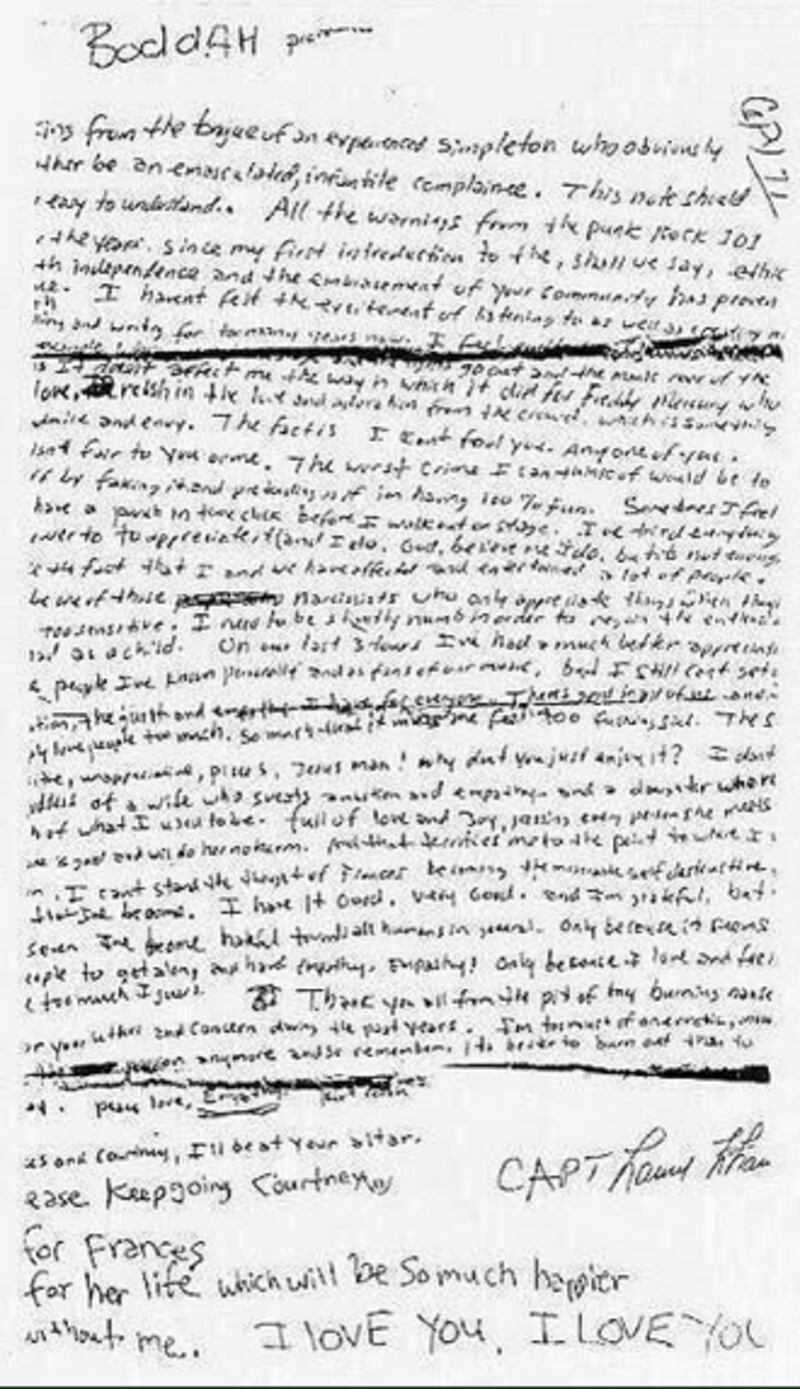 BoddAH
from the tongue of an experienced simpleton who obviously
be an emasculated, infantile complainee. This note should
easy to understand. All the warnings from the punk Rock 101
the years. since my first introduction to the, shall we say, ethic
independence and the embracement of your community has proven
I havent felt the excitement of listening to as well as creating
and writing for too many years now. I feel
go out and the manic roar of the
It doesnt affect me the way in which it did for Freddy Mercury who
love, relish in the love and adoration from the crowd. which is something
admire and envy. The fact is I cant fool you. Any one of you.
isnt fair to you or me. The worst crime I can think of would be to
by faking it and pretending as if im having 100% fun. Sometimes I feel
have a punch in time clock before I walk out on stage. I've tried everything
to to appreciate it (and I do, God, believe me I do, but its not enough
fact that I and we have affected and entertained a lot of people.
be one of those narcissists who only appreciate things when they
too sensitive. I need to be slightly numb in order to regain the enthusias
as a child. On our last 3 tours I've had a much better appreciati
people I've known personally and as fans of our music, but I still cant get
the guilt and empathy I have for everyone. Theres good in all of us and
love people too much. So much that it makes me feel too fucking sad. The s
unappreciative, pisces, Jesus man! why dont you just enjoy it? I dont
of a wife who sweats ambition and empathy and a daughter who re
of what I used to be. full of love and Joy, kissing every person she meets
is good and will do her no harm. And that terrifies me to the point to where I
I cant stand the thought of Frances becoming the miserable self destructive,
Ive become. I have it Good. very Good. and I'm grateful, but
seven Ive become hateful towards all humans in general. Only because it seems
people to get along and have empathy. Empathy! Only because I love and feel
too much I guess. Thank you all from the pit of my burning nause
your letters and concern during the past years. I'm too much of an erratic, moo
anymore and so remember, its better to burn out than to
peace love, Empathy.
and Courtney, I'll be at your altar.
CAPT
ease Keep going Courtney
for Frances
for her life which will be so much happier
without me. I LOVE YOU. I LOVE YOU